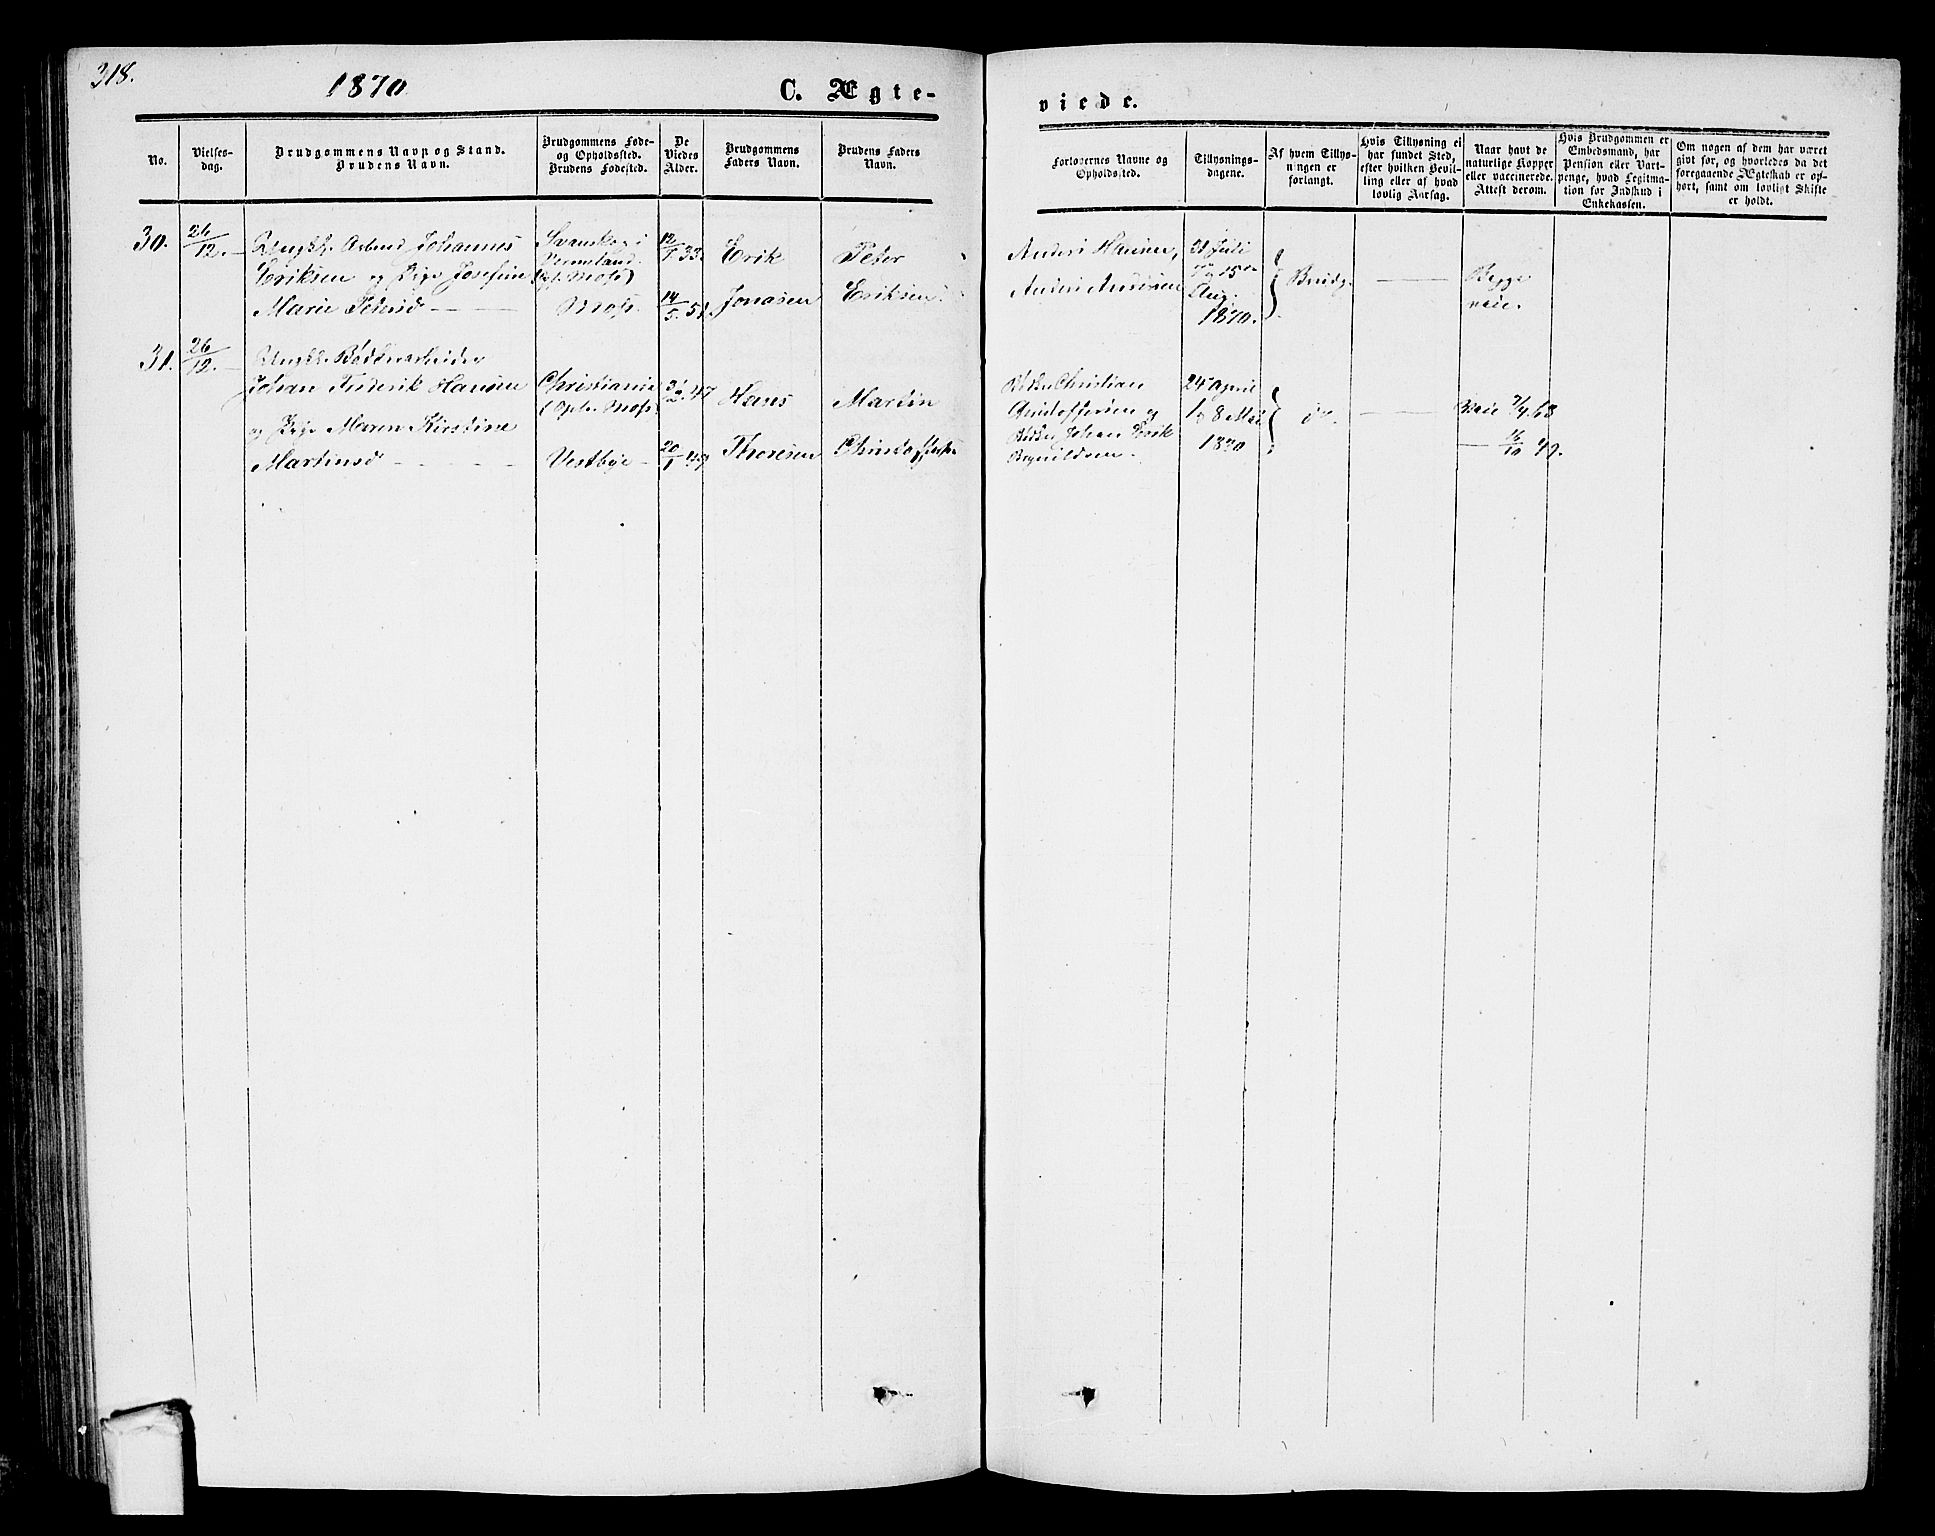 318.
1870
C. Ægte-
viede.
No.
Vielses-
dag.
Brudgommens Navn og Stand.
Brudens Navn.
Brudgommens Føde-
og Opholdssted.
Brudens Fødested.
De
Viedes
Alder.
Brudgommens
Faders Navn.
Brudens Faders
Navn.
Forlovernes Navne og
Opholdssted.
Tillysnings-
dagene.
Af hvem Tillys-
ningen er
forlangt.
Hvis Tillysning ei
har fundet Sted,
efter hvilken Bevil-
ling eller af hvad
lovlig Aarsag.
Naar havt de
naturlige Kopper
eller vaccinerede.
Attest derom.
Hvis Brudgommen er
Embedsmand, har
Pension eller Vart-
penge, hvad Legitima-
tion for Indskud i
Enkekassen.
Om nogen af dem har været
gift før, og hvorledes da det
foregaaende Ægteskab er op-
hørt, samt om lovligt Skifte
er holdt.
30.
26/12.
Ungk. Arbmd Johannes
Eriksen og Pige Josefine
Marie Petersd
Svanskog i
Vermland
(opt. Moss)
Moss.
12/1 33.
14/5 51.
Erik
Jonasen
Peter
Eriksen
Anders Hansen,
Anders Andersen
Juli
Aug.
1870.
Brudg.
Begge
vacc.
31.
26/12.
Ungk. Bødkerarbeider
Johan Frederik Hansen
og Pige Maren Kirstine
Martinsd
Christiania
(Opt. Moss)
Vestbye
47
20/1 49
Hans
Thoresen
Martin
Christoffersen
Christian
Christoffersen og
Johan Erik
Brynildsen
24 April
1 og 8 Mai
1870
do.
Vacc 7/9 68
16/10 49.